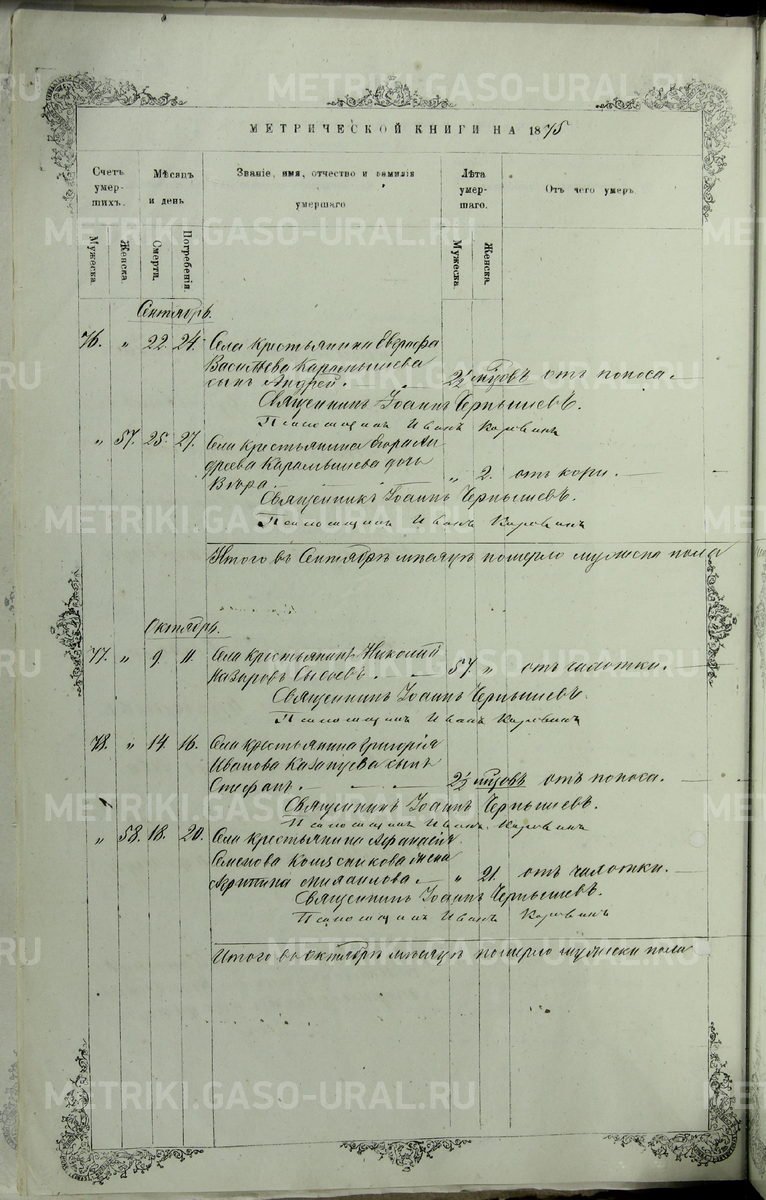 МЕТРИЧЕСКОЙ КНИГИ НА 1875
Счетъ умер- шихъ.
Мѣсяцъ и день
Званіе, имя, отчество и фамилія умершаго
Лѣта умер- шаго.
Отъ чего умеръ.
Мужеска.
Женска.
Смерти.
Погребенія.
Мужеска.
Женска.
Сентябрь.
76. „ 22. 24. Села крестьянина Евграфа
Васильева Карамышева
сынъ Андрей. 2½ мѣсяцовъ отъ поноса.
Священникъ Іоаннъ Чернышевъ.
Псаломщикъ Иванъ Коровинъ
„ 57. 25. 27. Села крестьянина Ан-
дреева Карамышева дочь
„ 2. отъ кори.
Священникъ Іоаннъ Чернышевъ.
Псаломщикъ Иванъ Коровинъ
Итого въ Сентябрѣ мѣсяцѣ померло мужеска пола
Октябрь.
77. „ 9. 11. Села крестьянинъ Николай
Назаровъ Сысоевъ. 57. „ отъ чахотки.
Священникъ Іоаннъ Чернышевъ.
Псаломщикъ Иванъ Коровинъ
78. „ 14. 16. Села крестьянина Григорія
Иванова Казанцева сынъ
Стефанъ. 2½ мѣсяцовъ отъ поноса.
Священникъ Іоаннъ Чернышевъ.
Псаломщикъ Иванъ Коровинъ
„ 58. 18. 20. Села крестьянина Афанасія
Семенова Колясникова жена
Агрипина Михаилова. „ 21. отъ чахотки.
Священникъ Іоаннъ Чернышевъ.
Псаломщикъ Иванъ Коровинъ
Итого въ Октябрѣ мѣсяцѣ померло мужеска пола
METRIKI.GASO-URAL.RU